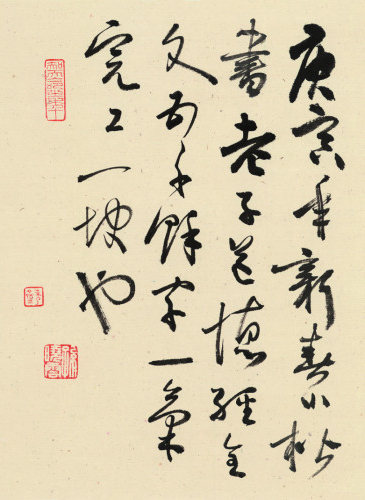 庚寅年新春小楷
書老子道德經全
文五千餘字一氣
完工一快也